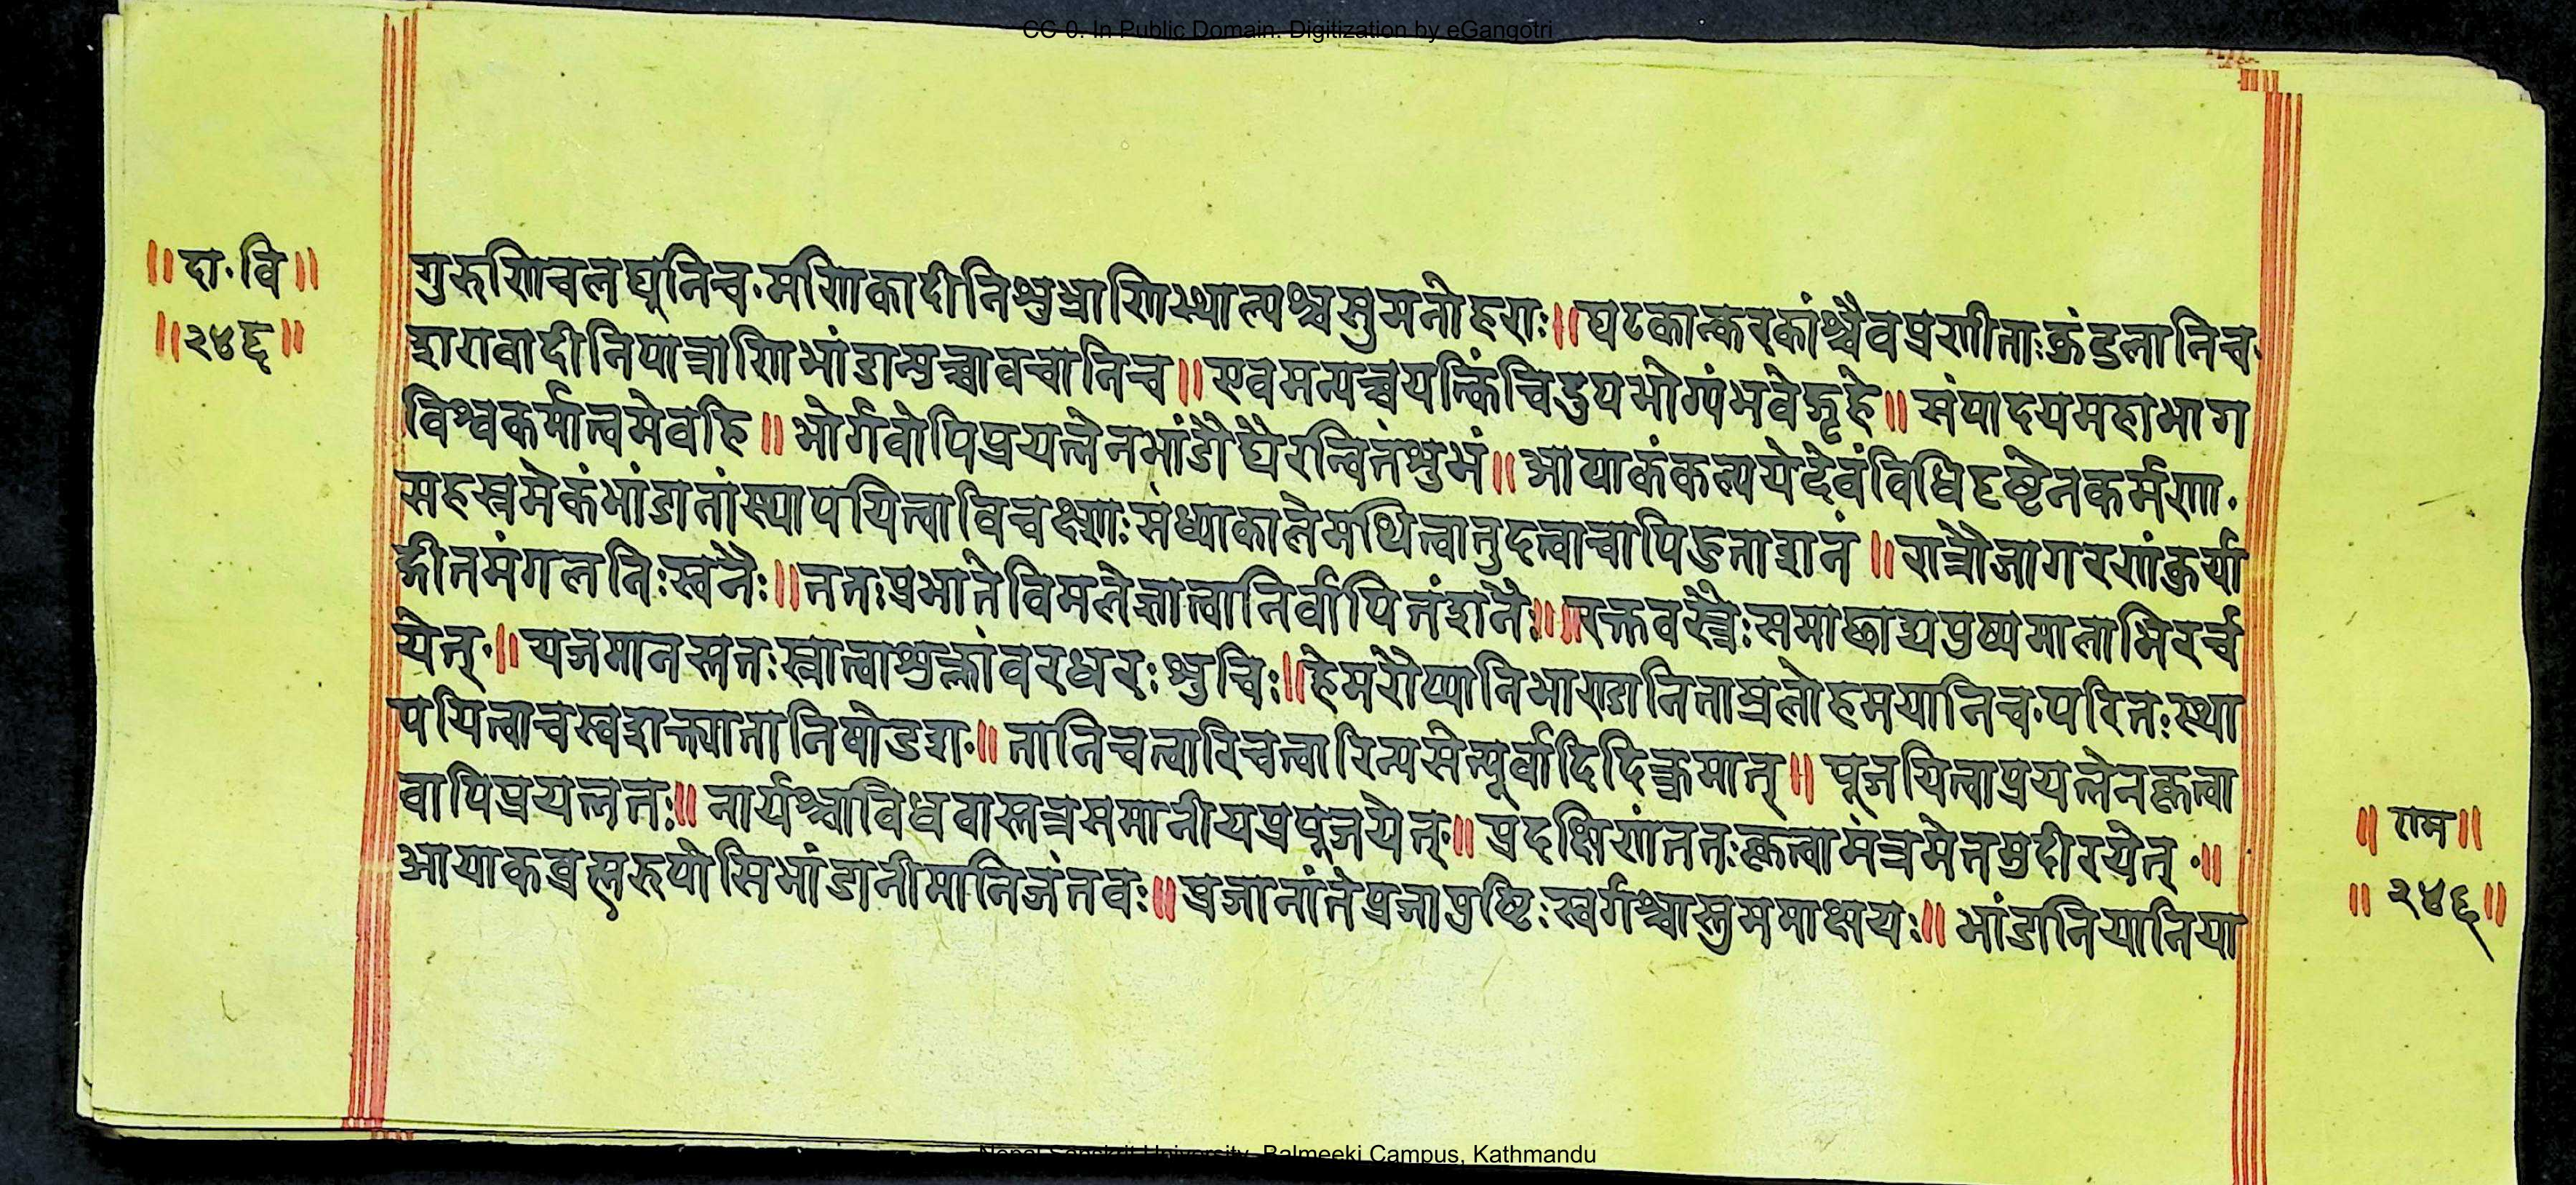 CC-0. In Public Domain. Digitization by eGangotri
॥दा॰वि॥
॥२४६॥
गुरुणिचलघूनिच॰मणिकादीनिशुभ्राणिस्थाल्यश्चसुमनोहराः॥घटकान्करकांश्चैवप्रणीताःकुंडलानिच॰
शरावादीनिपात्राणिभांडान्युच्चावचानिच॥एवमन्यच्चयत्किंचिदुपभोग्यंभवेद्गृहे॥संपादयमहाभाग
विश्वकर्मात्वमेवहि॥भोर्गवोपिप्रयत्नेनभांडौघैरन्वितंशुभं॥आपाकंकल्पयेद्देवंविधिदृष्टेनकर्मणा॰
सहस्रमेकंभांडानांस्थापयित्वाविचक्षणः॰संध्याकालेमथित्वातुदत्वाचापिहुताशनं॥रात्रौजागरणंकुर्या
द्गीतमंगलनिःस्वनैः॥ततःप्रभातेविमलेज्ञात्वानिर्वापितंशनैः॥रक्तवस्त्रैःसमाछाद्यपुष्पमालाभिरर्च
येत्॰॥यजमानस्ततःस्नात्वाशुक्लांवरधरःशुचिः॥हेमरौप्यानिभाण्डानिताम्रलोहमयानिच॰परितःस्था
पयित्वाचस्वशक्त्यातानिषोडश॰॥तानिचत्वारिचत्वारिन्यसेत्पूर्वादिदिक्क्रमात्॥पूजयित्वाप्रयत्नेनकृत्वा
वापिप्रयत्नतः॥नार्यश्चाविधवास्तत्रसमानीयप्रपूजयेत्॰॥प्रदक्षिणंततःकृत्वामंत्रमेतमुदीरयेत्॰॥
आपाकब्रह्मरुपोसिभांडानीमानिजंतवः॥प्रजानांतेप्रजापुष्टिःस्वर्गश्चास्तुममाक्षयः॥भांडानियानिया
॥राम॥
॥२४६॥
Nepal Sanskrit University, Balmeeki Campus, Kathmandu